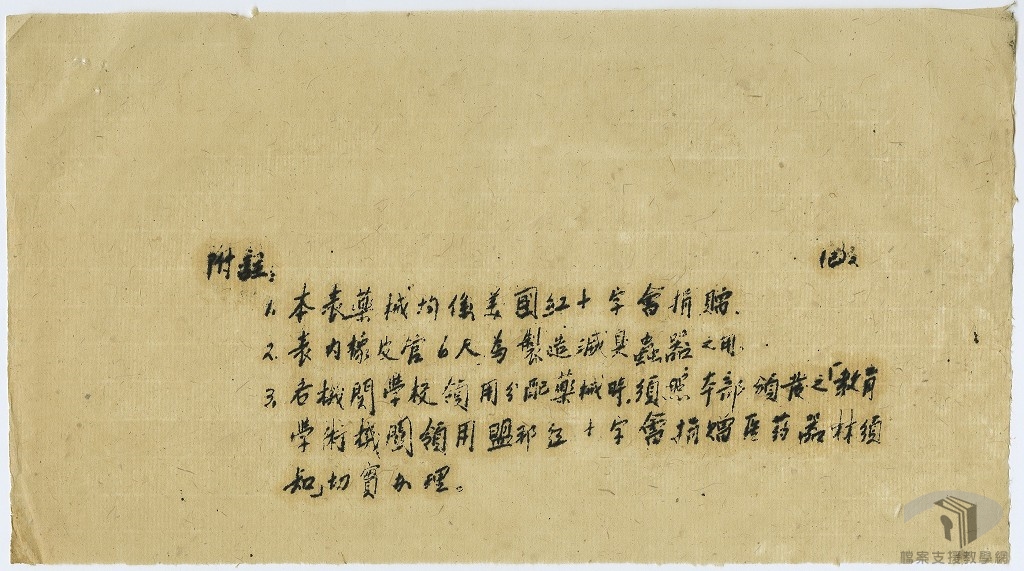 附註：
1. 本表藥械均係美国紅十字會捐贈.
2. 表内橡皮管6尺為製造滅臭蟲器之用.
3. 各機関學校領用分配藥械時.須照本部頒發之「教育
學術機関領用盟邦红十字會捐贈医药器材須
知」切實办理。
檔案支援教學網